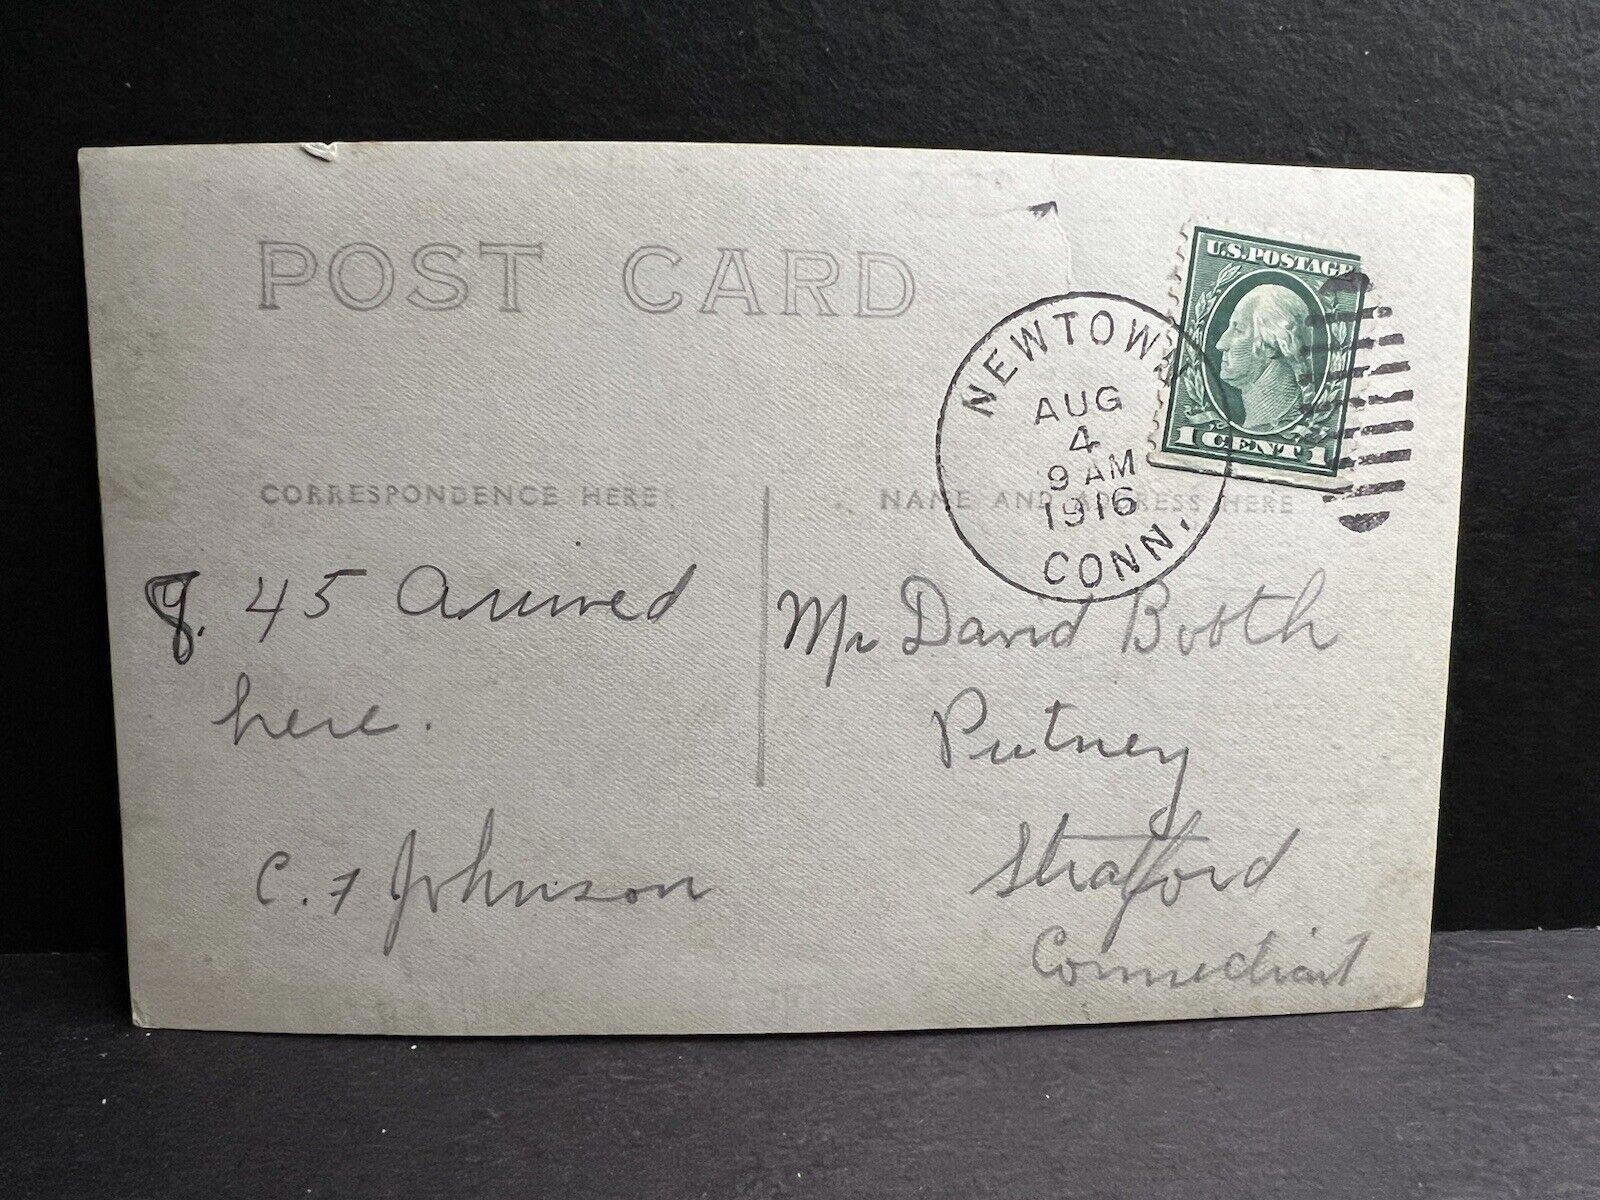 POST CARD
U.S. POSTAGE
1 CENT 1
NEWTOWN
AUG
4
9 AM
1916
CONN.
CORRESPONDENCE HERE
NAME AND ADDRESS HERE
45 Arrived
here.
C. F Johnson
Mr David Booth
Putney
Stratford
Connecticut